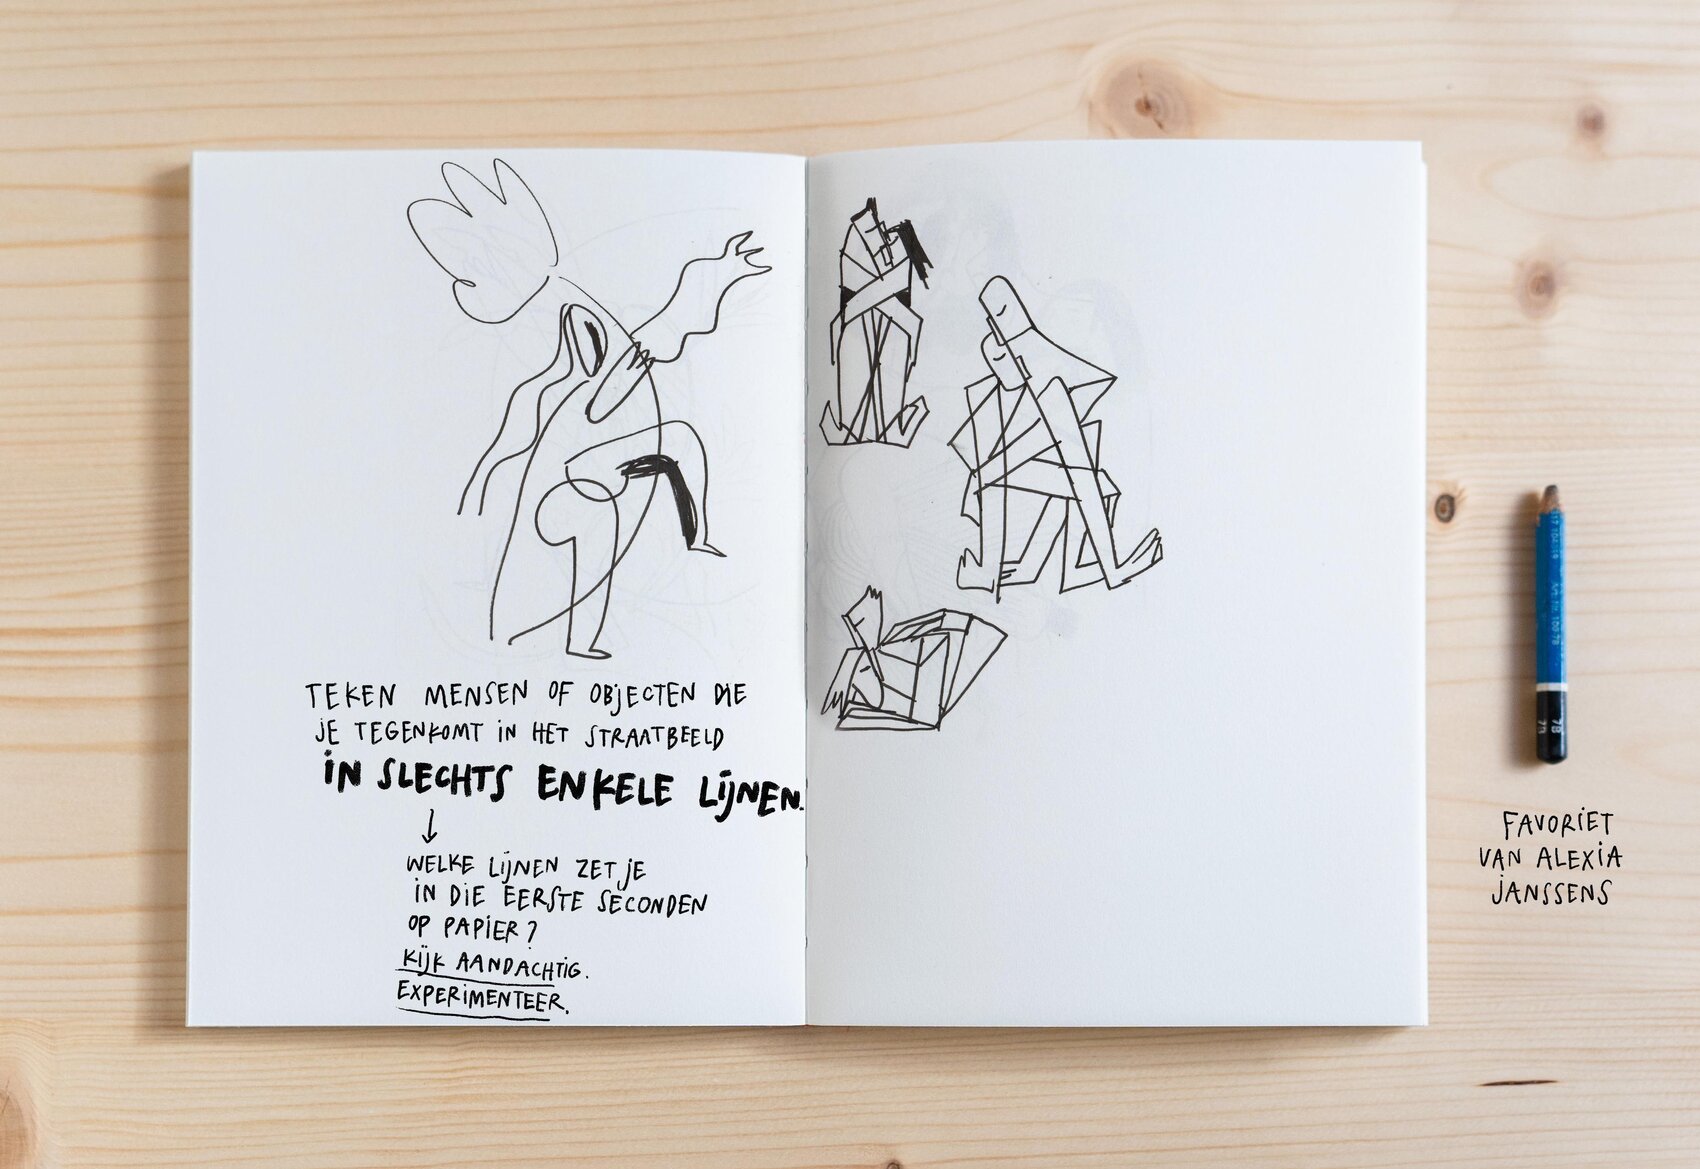 TEKEN MENSEN OF OBJECTEN DIE
JE TEGENKOMT IN HET STRAATBEELD
IN SLECHTS ENKELE LIJNEN.
WELKE LIJNEN ZET JE
IN DIE EERSTE SECONDEN
OP PAPIER?
KIJK AANDACHTIG.
EXPERIMENTEER.
7B
FAVORIET
VAN ALEXIA
JANSSENS